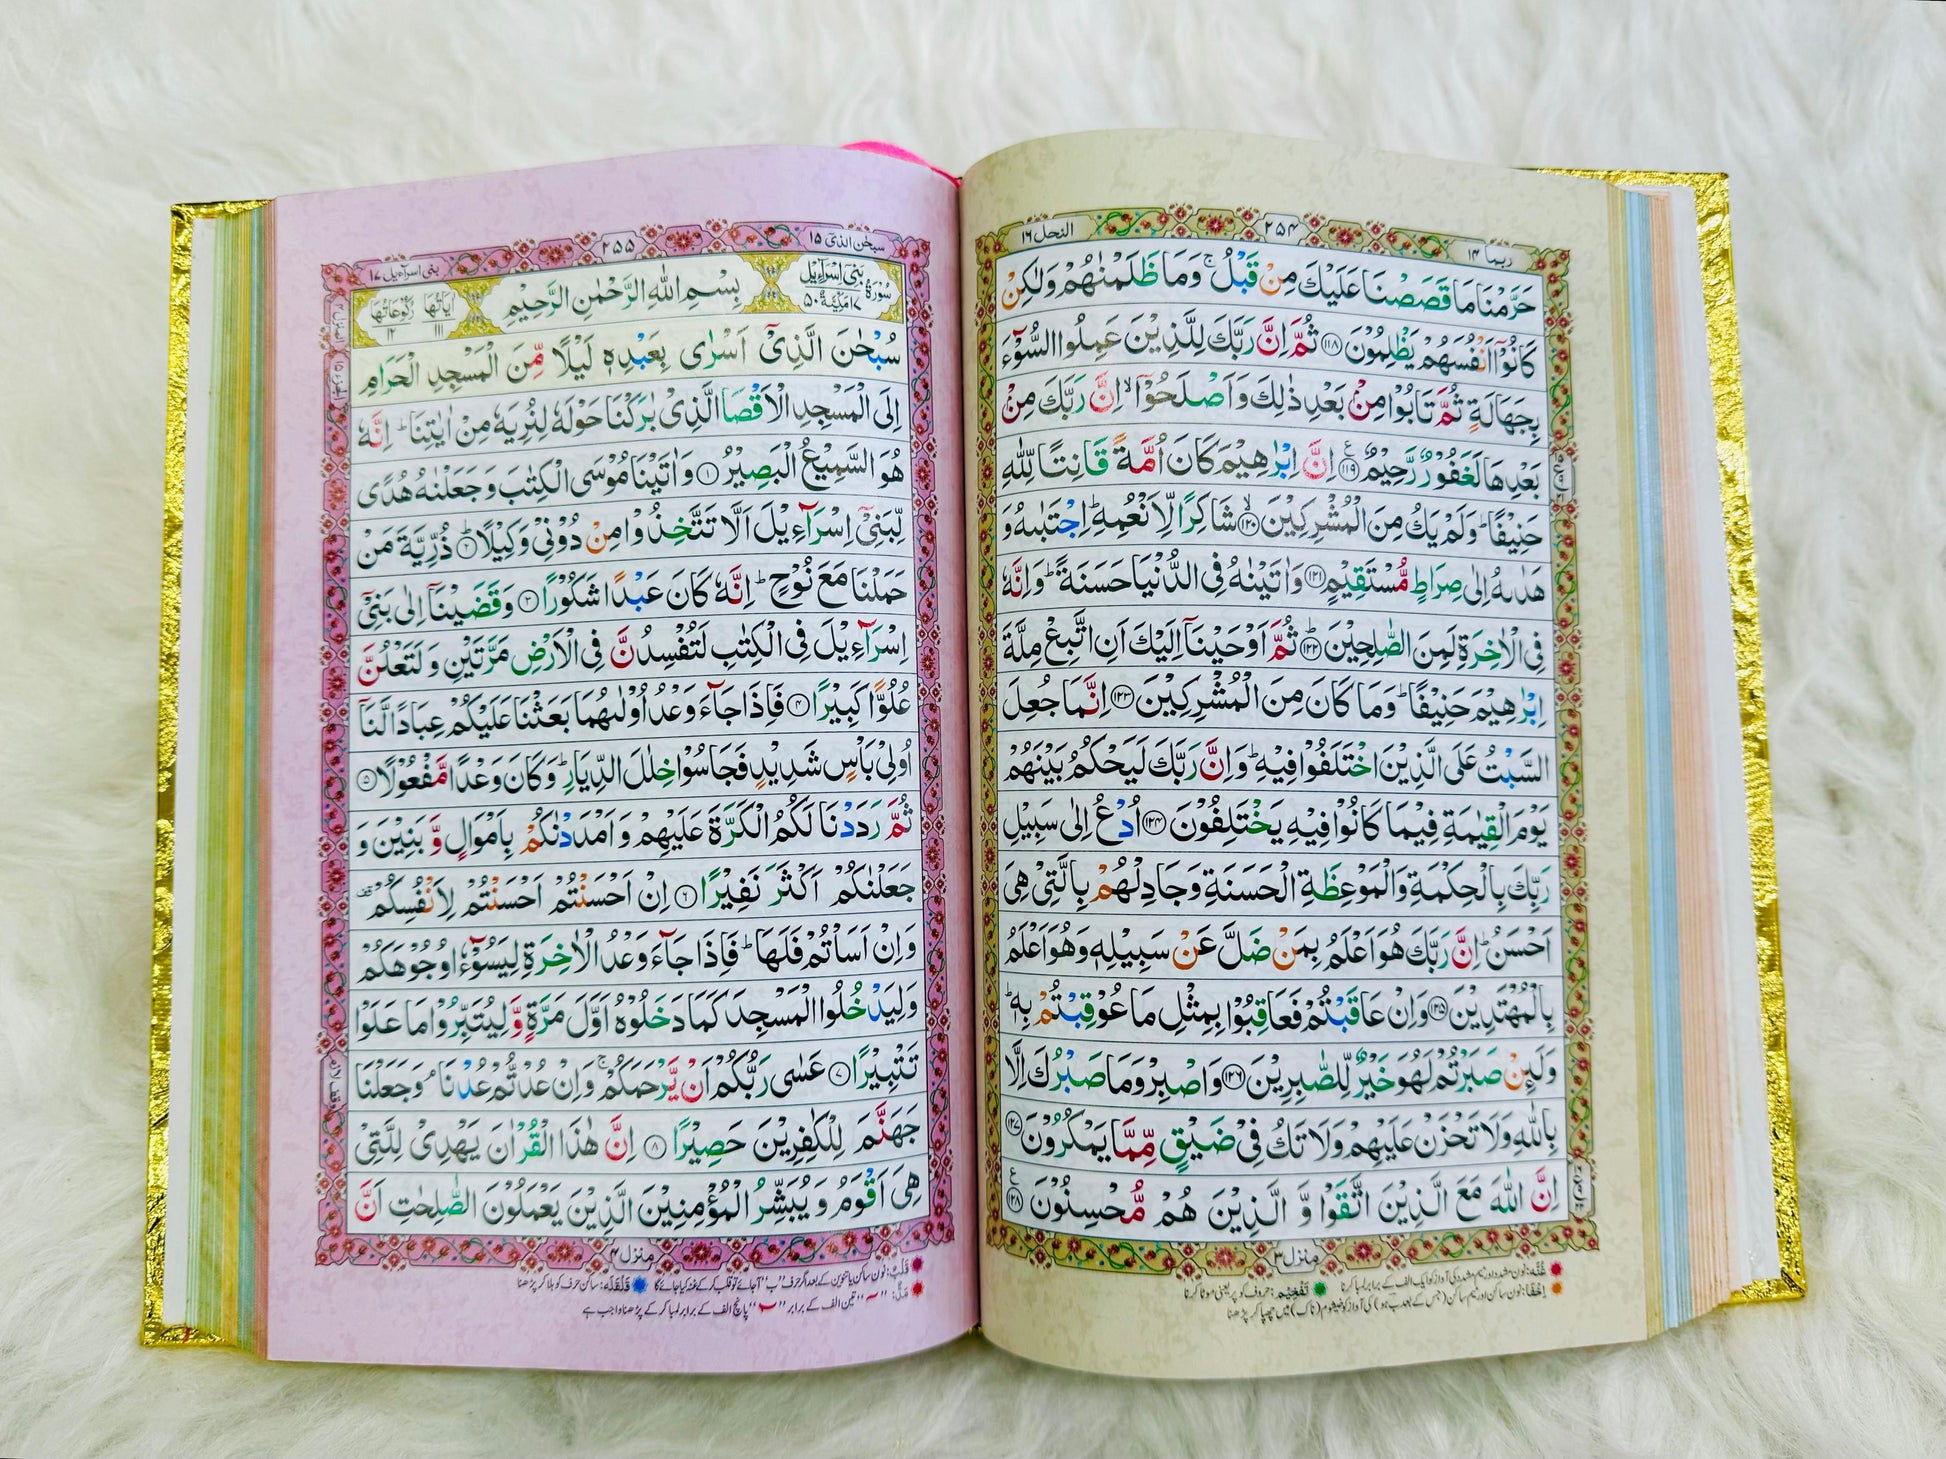 ربما ١٤
٢٥٤
النحل ١٦
حَرَّمْنَا مَا قَصَصْنَا عَلَيْكَ مِنْ قَبْلُ ۚ وَمَا ظَلَمْنٰهُمْ وَلٰكِنْ
كَانُوْۤا اَنْفُسَهُمْ يَظْلِمُوْنَ ﴿١١٨﴾ ثُمَّ اِنَّ رَبَّكَ لِلَّذِيْنَ عَمِلُوا السُّوْٓءَ
بِجَهَالَةٍ ثُمَّ تَابُوْا مِنْۢ بَعْدِ ذٰلِكَ وَاَصْلَحُوْۤا ۙ اِنَّ رَبَّكَ مِنْۢ
بَعْدِهَا لَغَفُوْرٌ رَّحِيْمٌ ﴿١١٩﴾ اِنَّ اِبْرٰهِيْمَ كَانَ اُمَّةً قَانِتًا لِّلّٰهِ
حَنِيْفًا ؕ وَلَمْ يَكُ مِنَ الْمُشْرِكِيْنَ ﴿١٢٠﴾ شَاكِرًا لِّاَنْعُمِهٖ ؕ اِجْتَبٰىهُ وَ
هَدٰىهُ اِلٰى صِرَاطٍ مُّسْتَقِيْمٍ ﴿١٢١﴾ وَاٰتَيْنٰهُ فِى الدُّنْيَا حَسَنَةً ؕ وَاِنَّهٗ
فِى الْاٰخِرَةِ لَمِنَ الصّٰلِحِيْنَ ﴿١٢٢﴾ ثُمَّ اَوْحَيْنَاۤ اِلَيْكَ اَنِ اتَّبِعْ مِلَّةَ
اِبْرٰهِيْمَ حَنِيْفًا ؕ وَمَا كَانَ مِنَ الْمُشْرِكِيْنَ ﴿١٢٣﴾ اِنَّمَا جُعِلَ
السَّبْتُ عَلَى الَّذِيْنَ اخْتَلَفُوْا فِيْهِ ؕ وَاِنَّ رَبَّكَ لَيَحْكُمُ بَيْنَهُمْ
يَوْمَ الْقِيٰمَةِ فِيْمَا كَانُوْا فِيْهِ يَخْتَلِفُوْنَ ﴿١٢٤﴾ اُدْعُ اِلٰى سَبِيْلِ
رَبِّكَ بِالْحِكْمَةِ وَالْمَوْعِظَةِ الْحَسَنَةِ وَجَادِلْهُمْ بِالَّتِىْ هِىَ
اَحْسَنُ ؕ اِنَّ رَبَّكَ هُوَ اَعْلَمُ بِمَنْ ضَلَّ عَنْ سَبِيْلِهٖ وَهُوَ اَعْلَمُ
بِالْمُهْتَدِيْنَ ﴿١٢٥﴾ وَاِنْ عَاقَبْتُمْ فَعَاقِبُوْا بِمِثْلِ مَا عُوْقِبْتُمْ بِهٖ ؕ
وَلَئِنْ صَبَرْتُمْ لَهُوَ خَيْرٌ لِّلصّٰبِرِيْنَ ﴿١٢٦﴾ وَاصْبِرْ وَمَا صَبْرُكَ اِلَّا
بِاللّٰهِ وَلَا تَحْزَنْ عَلَيْهِمْ وَلَا تَكُ فِىْ ضَيْقٍ مِّمَّا يَمْكُرُوْنَ ﴿١٢٧﴾
اِنَّ اللّٰهَ مَعَ الَّذِيْنَ اتَّقَوْا وَّ الَّذِيْنَ هُمْ مُّحْسِنُوْنَ ﴿١٢٨﴾
منزل ٣
سبحٰن الذی ١٥
٢٥٥
بنی اسراءیل ١٧
سُوْرَةُ بَنِیْۤ اِسْرَآءِيْلَ
١٧ مَكِّيَّةٌ ٥٠
بِسْمِ اللّٰهِ الرَّحْمٰنِ الرَّحِيْمِ
اٰيَاتُهَا ١١١
رُكُوْعَاتُهَا ١٢
سُبْحٰنَ الَّذِىْۤ اَسْرٰى بِعَبْدِهٖ لَيْلًا مِّنَ الْمَسْجِدِ الْحَرَامِ
اِلَى الْمَسْجِدِ الْاَقْصَا الَّذِىْ بٰرَكْنَا حَوْلَهٗ لِنُرِيَهٗ مِنْ اٰيٰتِنَا ؕ اِنَّهٗ
هُوَ السَّمِيْعُ الْبَصِيْرُ ﴿١﴾ وَاٰتَيْنَا مُوْسَى الْكِتٰبَ وَجَعَلْنٰهُ هُدًى
لِّبَنِىْۤ اِسْرَآءِيْلَ اَلَّا تَتَّخِذُوْا مِنْ دُوْنِىْ وَكِيْلًا ؕ﴿٢﴾ ذُرِّيَّةَ مَنْ
حَمَلْنَا مَعَ نُوْحٍ ؕ اِنَّهٗ كَانَ عَبْدًا شَكُوْرًا ﴿٣﴾ وَقَضَيْنَاۤ اِلٰى بَنِىْۤ
اِسْرَآءِيْلَ فِى الْكِتٰبِ لَتُفْسِدُنَّ فِى الْاَرْضِ مَرَّتَيْنِ وَلَتَعْلُنَّ
عُلُوًّا كَبِيْرًا ﴿٤﴾ فَاِذَا جَآءَ وَعْدُ اُوْلٰىهُمَا بَعَثْنَا عَلَيْكُمْ عِبَادًا لَّنَاۤ
اُولِىْ بَاْسٍ شَدِيْدٍ فَجَاسُوْا خِلٰلَ الدِّيَارِ ؕ وَكَانَ وَعْدًا مَّفْعُوْلًا ﴿٥﴾
ثُمَّ رَدَدْنَا لَكُمُ الْكَرَّةَ عَلَيْهِمْ وَاَمْدَدْنٰكُمْ بِاَمْوَالٍ وَّ بَنِيْنَ وَ
جَعَلْنٰكُمْ اَكْثَرَ نَفِيْرًا ﴿٦﴾ اِنْ اَحْسَنْتُمْ اَحْسَنْتُمْ لِاَنْفُسِكُمْ قف
وَاِنْ اَسَاْتُمْ فَلَهَا ؕ فَاِذَا جَآءَ وَعْدُ الْاٰخِرَةِ لِيَسُوْٓءٗا وُجُوْهَكُمْ
وَلِيَدْخُلُوا الْمَسْجِدَ كَمَا دَخَلُوْهُ اَوَّلَ مَرَّةٍ وَّلِيُتَبِّرُوْا مَا عَلَوْا
تَتْبِيْرًا ﴿٧﴾ عَسٰى رَبُّكُمْ اَنْ يَّرْحَمَكُمْ ۚ وَاِنْ عُدْتُّمْ عُدْنَا ۘ وَجَعَلْنَا
جَهَنَّمَ لِلْكٰفِرِيْنَ حَصِيْرًا ﴿٨﴾ اِنَّ هٰذَا الْقُرْاٰنَ يَهْدِىْ لِلَّتِىْ
هِىَ اَقْوَمُ وَ يُبَشِّرُ الْمُؤْمِنِيْنَ الَّذِيْنَ يَعْمَلُوْنَ الصّٰلِحٰتِ اَنَّ
منزل ٤